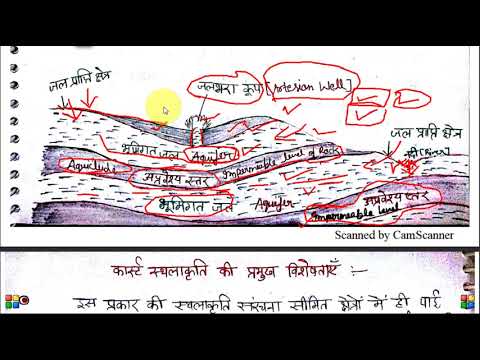 जल प्राप्ति क्षेत्र
जलभरा कूप [Artesian Well]
जल प्राप्ति क्षेत्र
भूमिगत जल Aquifer
Aquiclude अप्रवेश्य स्तर Impermeable level of Rock
भूमिगत जल Aquifer
अप्रवेश्य स्तर
Impermeable level
Scanned by CamScanner
कार्स्ट स्थलाकृति की प्रमुख विशेषताएँ :-
इस प्रकार की स्थलाकृति संरचना सीमित क्षेत्रों में ही पाई